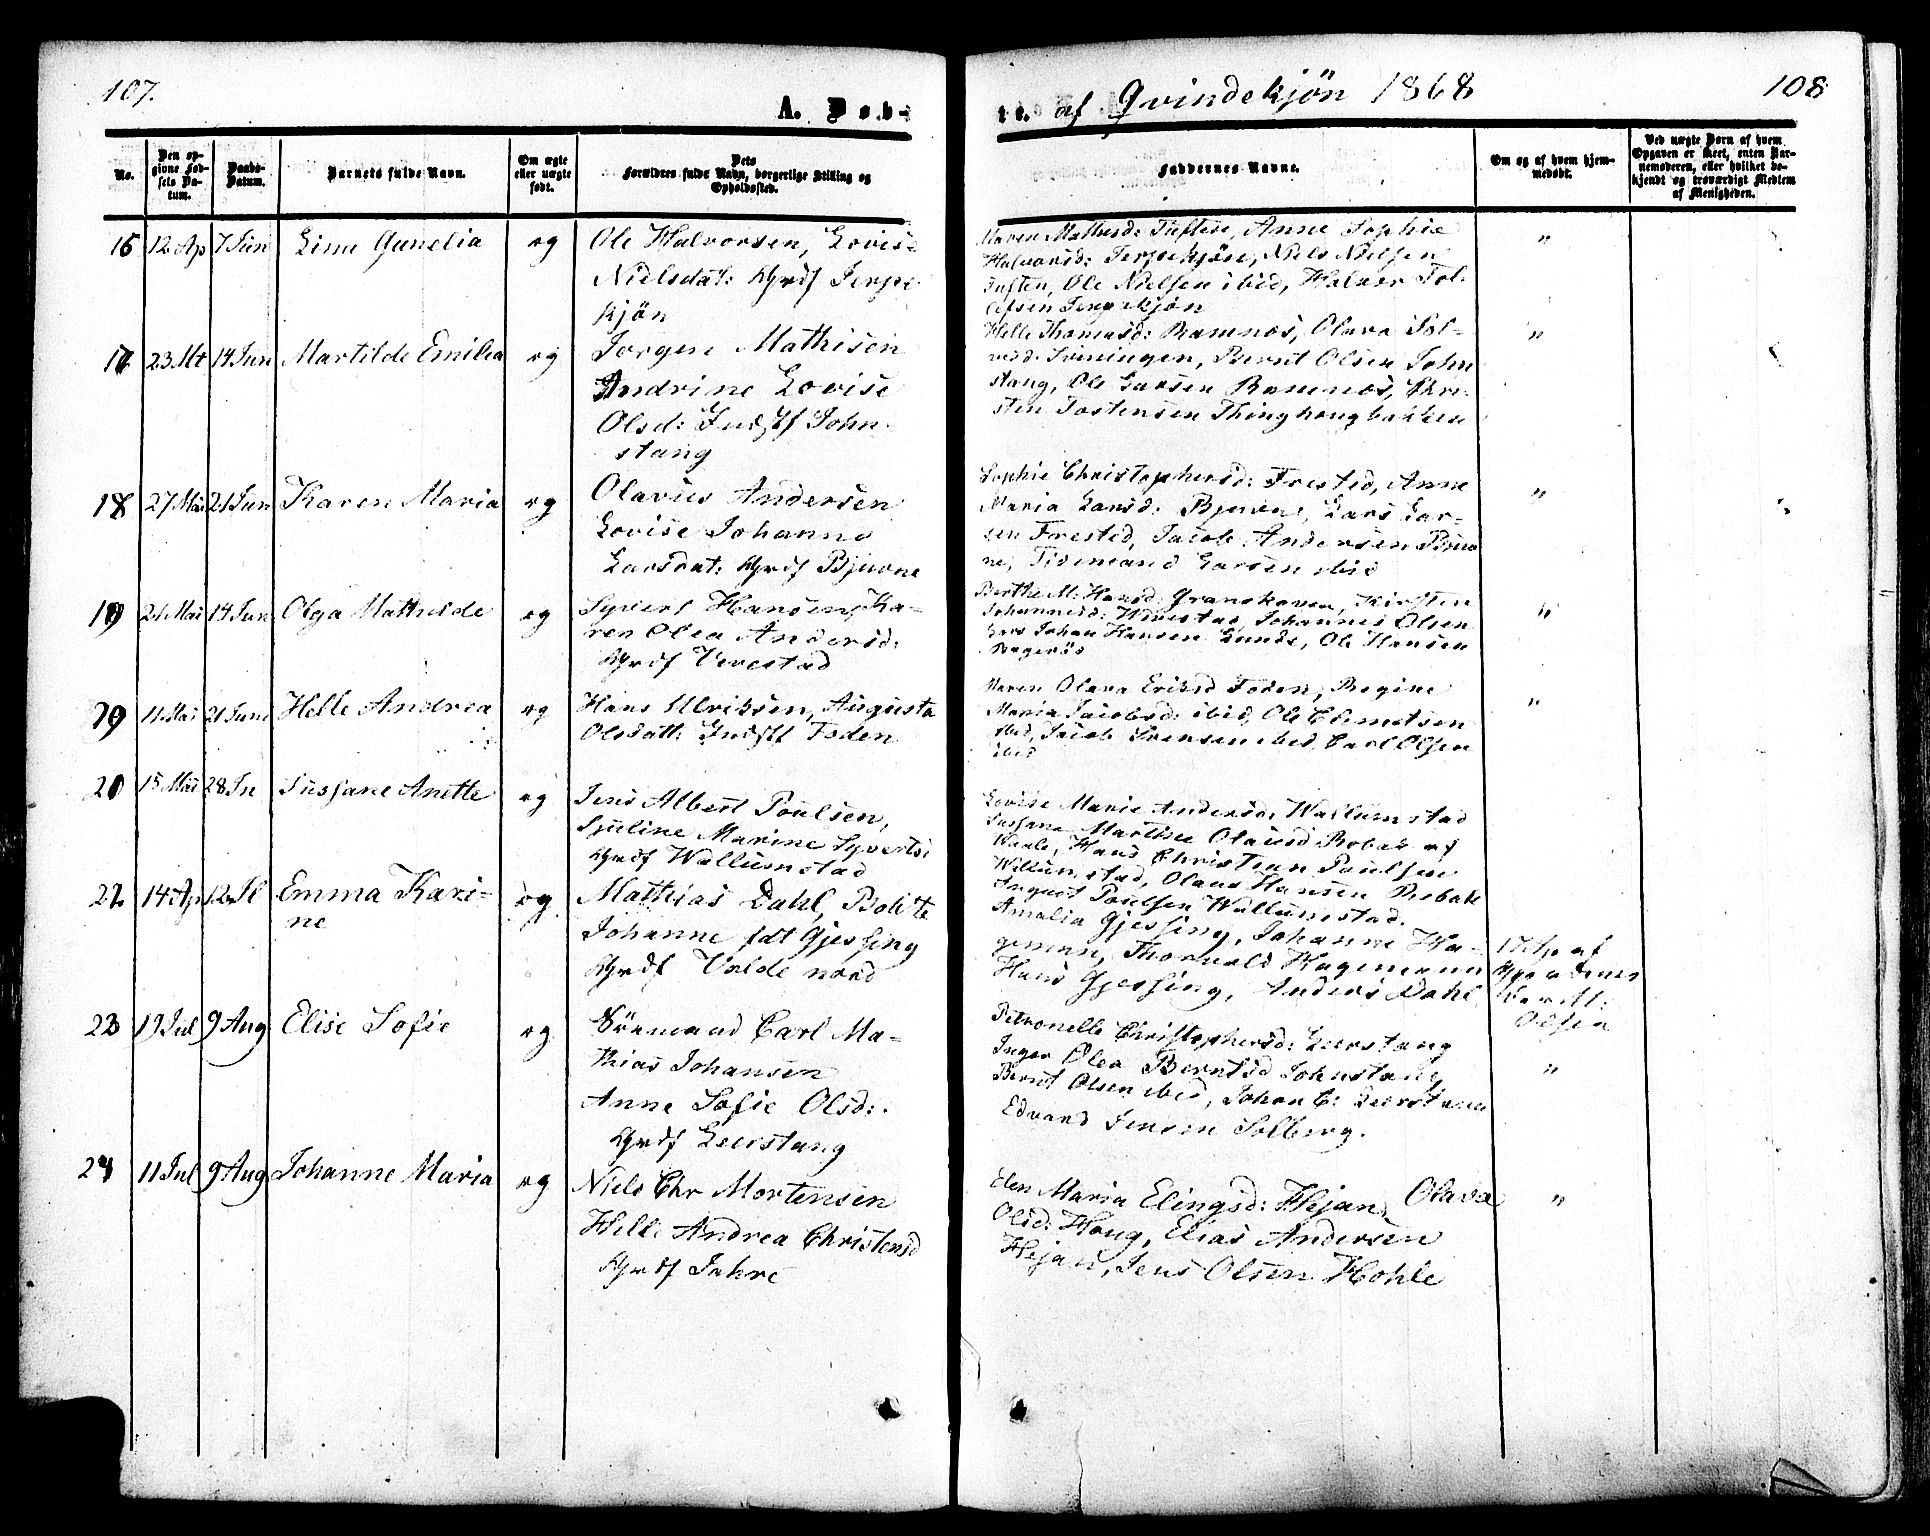 107.
A. Døb-
te. af Qvindekjön 1868
108
No.
Den op-
givne Fød-
sels Da-
tum.
Daabs-
Datum.
Barnets fulde Navn.
Om ægte
eller uægte
født.
Dets
Forældres fulde Navn, borgerlige Stilling og
Opholdssted.
Faddernes Navne.
Om og af hvem hjem-
medøbt.
Ved uægte Børn af hvem
Opgaven er skeet, enten Bar-
nemoderen, eller hvilket be-
kjendt og troværdigt Medlem
af Menigheden.
16 12 Ap 7 Jun Lina Gunelia eg
Ole Halvorsen, Lovise
Nielsdat: Grdf Jerpe
kjön
Maren Mathisd: Tuften, Anne Sophie
Halvorsd: Jerpekjön, Niels Nielsen
Tuften, Ole Nielsen ibid, Halvor Tol-
lefsen Jerpekjön
"
17 23 Mt 14 Jun Martilde Emilea eg
Jörgen Mathisen
Andrine Lovise
Olsd: Indstf John-
stang
Helle Thomasd: Ramnæs, Olava Sol-
vesd: Sviningen, Bernt Olsen John
stang, Ole Larsen Ramnæs, Chri-
sten Tostensen Thinghougbakken
"
18 27 Mai 21 Jun Karen Maria eg
Olavus Andersen
Lovise Johanne
Larsdat: Grdf Bjuerne
Sophie Christophersd: Frested, Anne
Maria Larsd: Bjuerne, Lars Lar-
sen Frested, Jacob Andersen Bjuer
ne, Tidemand Larsen ibid
"
19 21 Mai 14 Jun Olga Mathilde eg
Syvert Hansen, Ka-
ren Olea Andersd:
Grdf Virestad
Berthe M. Hansd: Granskoven, Kirsten
Johannesd: Wirestad, Johannes Olsen
Lars Johan Hansen Lunde, Ole Hansen
"
19 11 Mai 21 Juni Helle Andrea eg
Hans Ulriksen, Augusta
Olsdatt: Indstf Foden
Maren Olava Eriksd Foden, Regine
Maria Jacobsd: ibid, Ole Clemetsen
ibid, Jacob Svensen ibid, Carl Olsen
ibid
"
20 15 Mai 28 Jn Sussane Anette eg
Jens Albert Poulsen,
Sjuline Marine Syvertsd
Grdf Wallumstad
Lovise Marie Andersd: Wallumstad
Sussane Marthea Olausd Robak af
Waale, Hans Christian Paulsen
Wallumstad, Olaus Hansen Robak
August Poulsen Wallumstad.
22 14 Ap 12 Jl Emma Kari-
ne
eg
Mathias Dahl, Bolette
Johanne fdt Gjessing
Grdf Valde nord
Amalia Gjessing, Johanne Ha-
gemann, Thorvald Hagemann
Hans Gjessing, Anders Dahl
17 Ap af
Olsen
23 19 Jul 9 Aug Elise Sofie eg
Sömand Carl Ma-
thias Johansen
Anne Sofie Olsd:
Grdf Leerstang
Petronelle Christophersd: Leerstang
Inger Olea Berntsd Johnstang
Bernt Olsen ibid, Johan C: Leerstang
Edvard Jensen Solberg.
"
24 11 Jul 9 Aug Johanne Maria eg
Niels Chr Mortensen
Helle Andrea Christensd
Grdf Jahre
Elen Maria Elingsd: Hejan, Olava
Olsd: Houg, Elias Andersen
Hejan, Jens Olsen Hohle
"